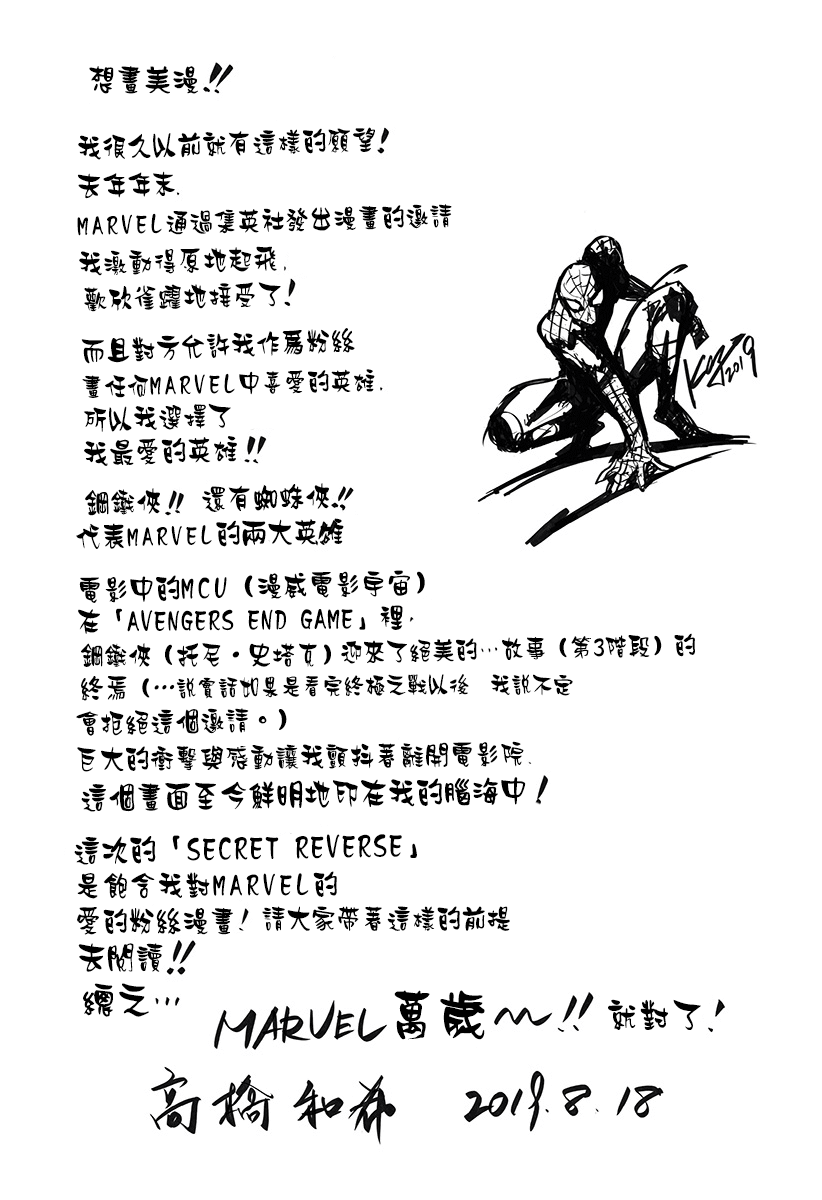 想畫美漫!!
我很久以前就有這樣的願望!
去年年末,
MARVEL通過集英社發出漫畫的邀請
我激動得原地起飛,
歡欣雀躍地接受了!
而且對方允許我作為粉絲
畫任何MARVEL中喜愛的英雄,
所以我選擇了
我最愛的英雄!!
鋼鐵俠!! 還有蜘蛛俠!!
代表MARVEL的兩大英雄
電影中的MCU（漫威電影宇宙）
在「AVENGERS END GAME」裡,
鋼鐵俠（托尼・史塔克）迎來了絕美的…故事（第3階段）的
終焉（…說實話如果是看完終極之戰以後 我說不定
會拒絕這個邀請。）
巨大的衝擊與感動讓我顫抖著離開電影院,
這個畫面至今鮮明地印在我的腦海中!
這次的「SECRET REVERSE」
是飽含我對MARVEL的
愛的粉絲漫畫! 請大家帶著這樣的前提
去閱讀!!
總之…
MARVEL萬歲～～!! 就對了!
高橋和希 2019.8.18
2019